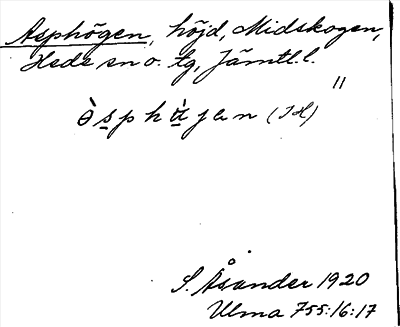 Asphögen, höjd, Midskogen,
Hede sn o. tg, Jämtl. l.
"
(JH)
S. Åsander 1920
Ulma 755:16:17